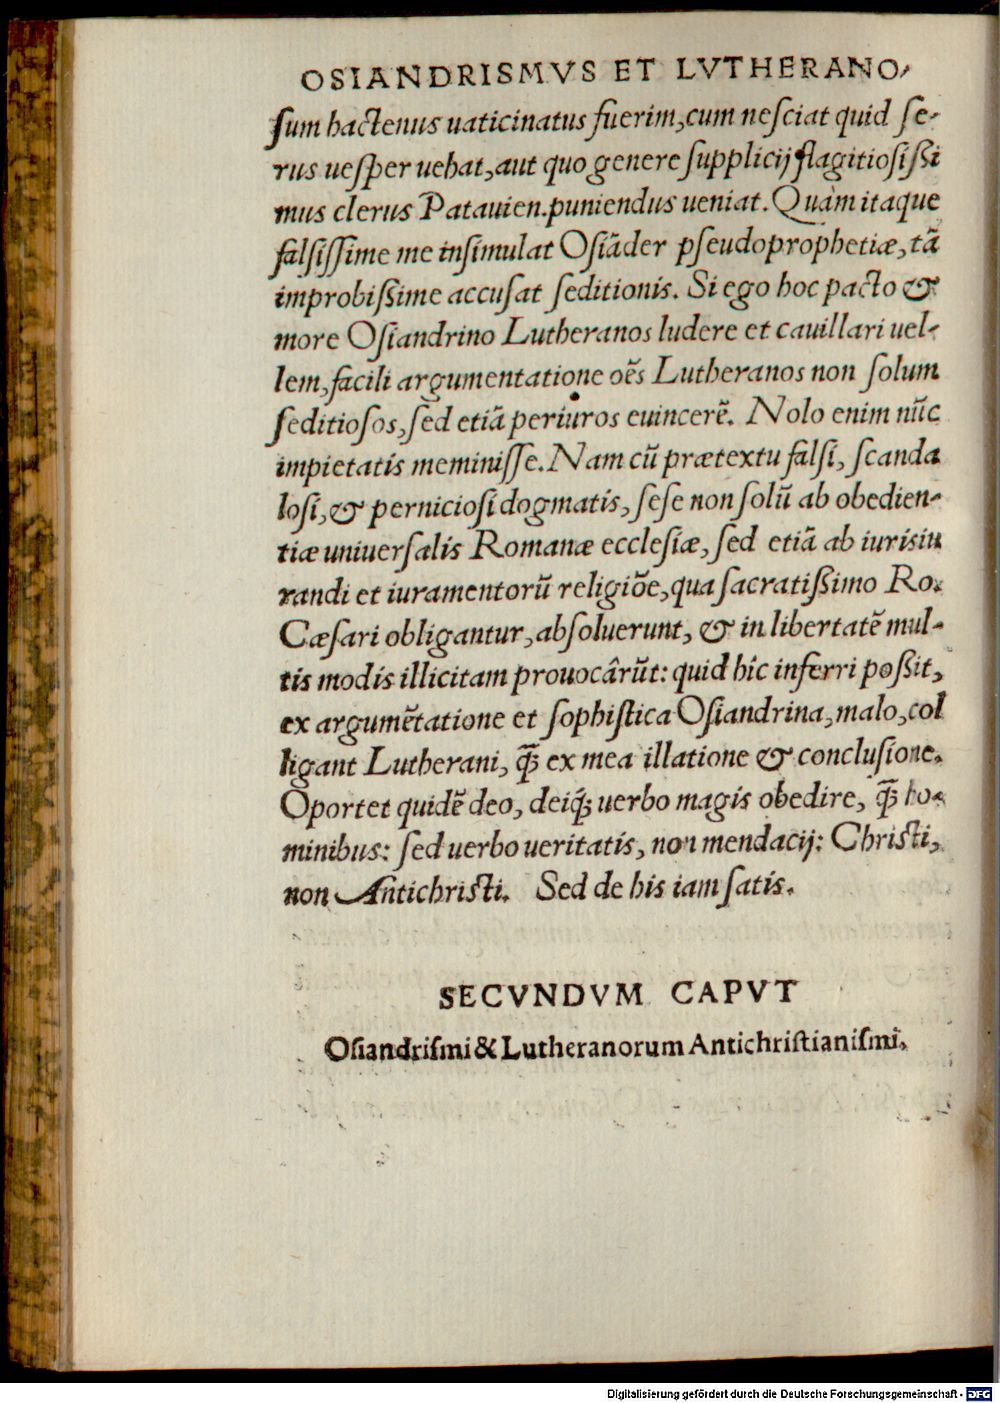 OSIANDRISMVS ET LVTHERANO⸗
ſum hactenus uaticinatus fuerim, cum neſciat quid ſe-
rus ueſper uehat, aut quo genere ſupplicij flagitioſißi
mus clerus Patauien. puniendus ueniat. Quàm itaque
falſiſſime me inſimulat Oſiāder pſeudoprophetiæ, tā
improbißime accuſat ſeditionis. Si ego hoc pacto &
more Oſiandrino Lutheranos ludere et cauillari uel-
lem, facili argumentatione oēs Lutheranos non ſolum
ſeditioſos, ſed etiā periuros euincerē. Nolo enim nūc
impietatis meminiſſe. Nam cū prætextu falſi, ſcanda
loſi, & pernicioſi dogmatis, ſeſe non ſolū ab obedien-
tiæ uniuerſalis Romanæ eccleſiæ, ſed etiā ab iurisiu
randi et iuramentorū religiōe, qua ſacratißimo Ro.
Cæſari obligantur, abſoluerunt, & in libertatē mul-
tis modis illicitam prouocârūt: quid hîc inferri poßit,
ex argumētatione et ſophiſtica Oſiandrina, malo, col
ligant Lutherani, ꝙ̃ ex mea illatione & concluſione.
Oportet quidē deo, deiq́ꝫ uerbo magis obedire, ꝙ̃ ho-
minibus: ſed uerbo ueritatis, non mendacij: Chriſti,
non Antichriſti. Sed de his iam ſatis.
SECVNDVM CAPVT
Oſiandriſmi & Lutheranorum Antichriſtianiſmi.
Digitalisierung gefördert durch die Deutsche Forschungsgemeinschaft - DFG